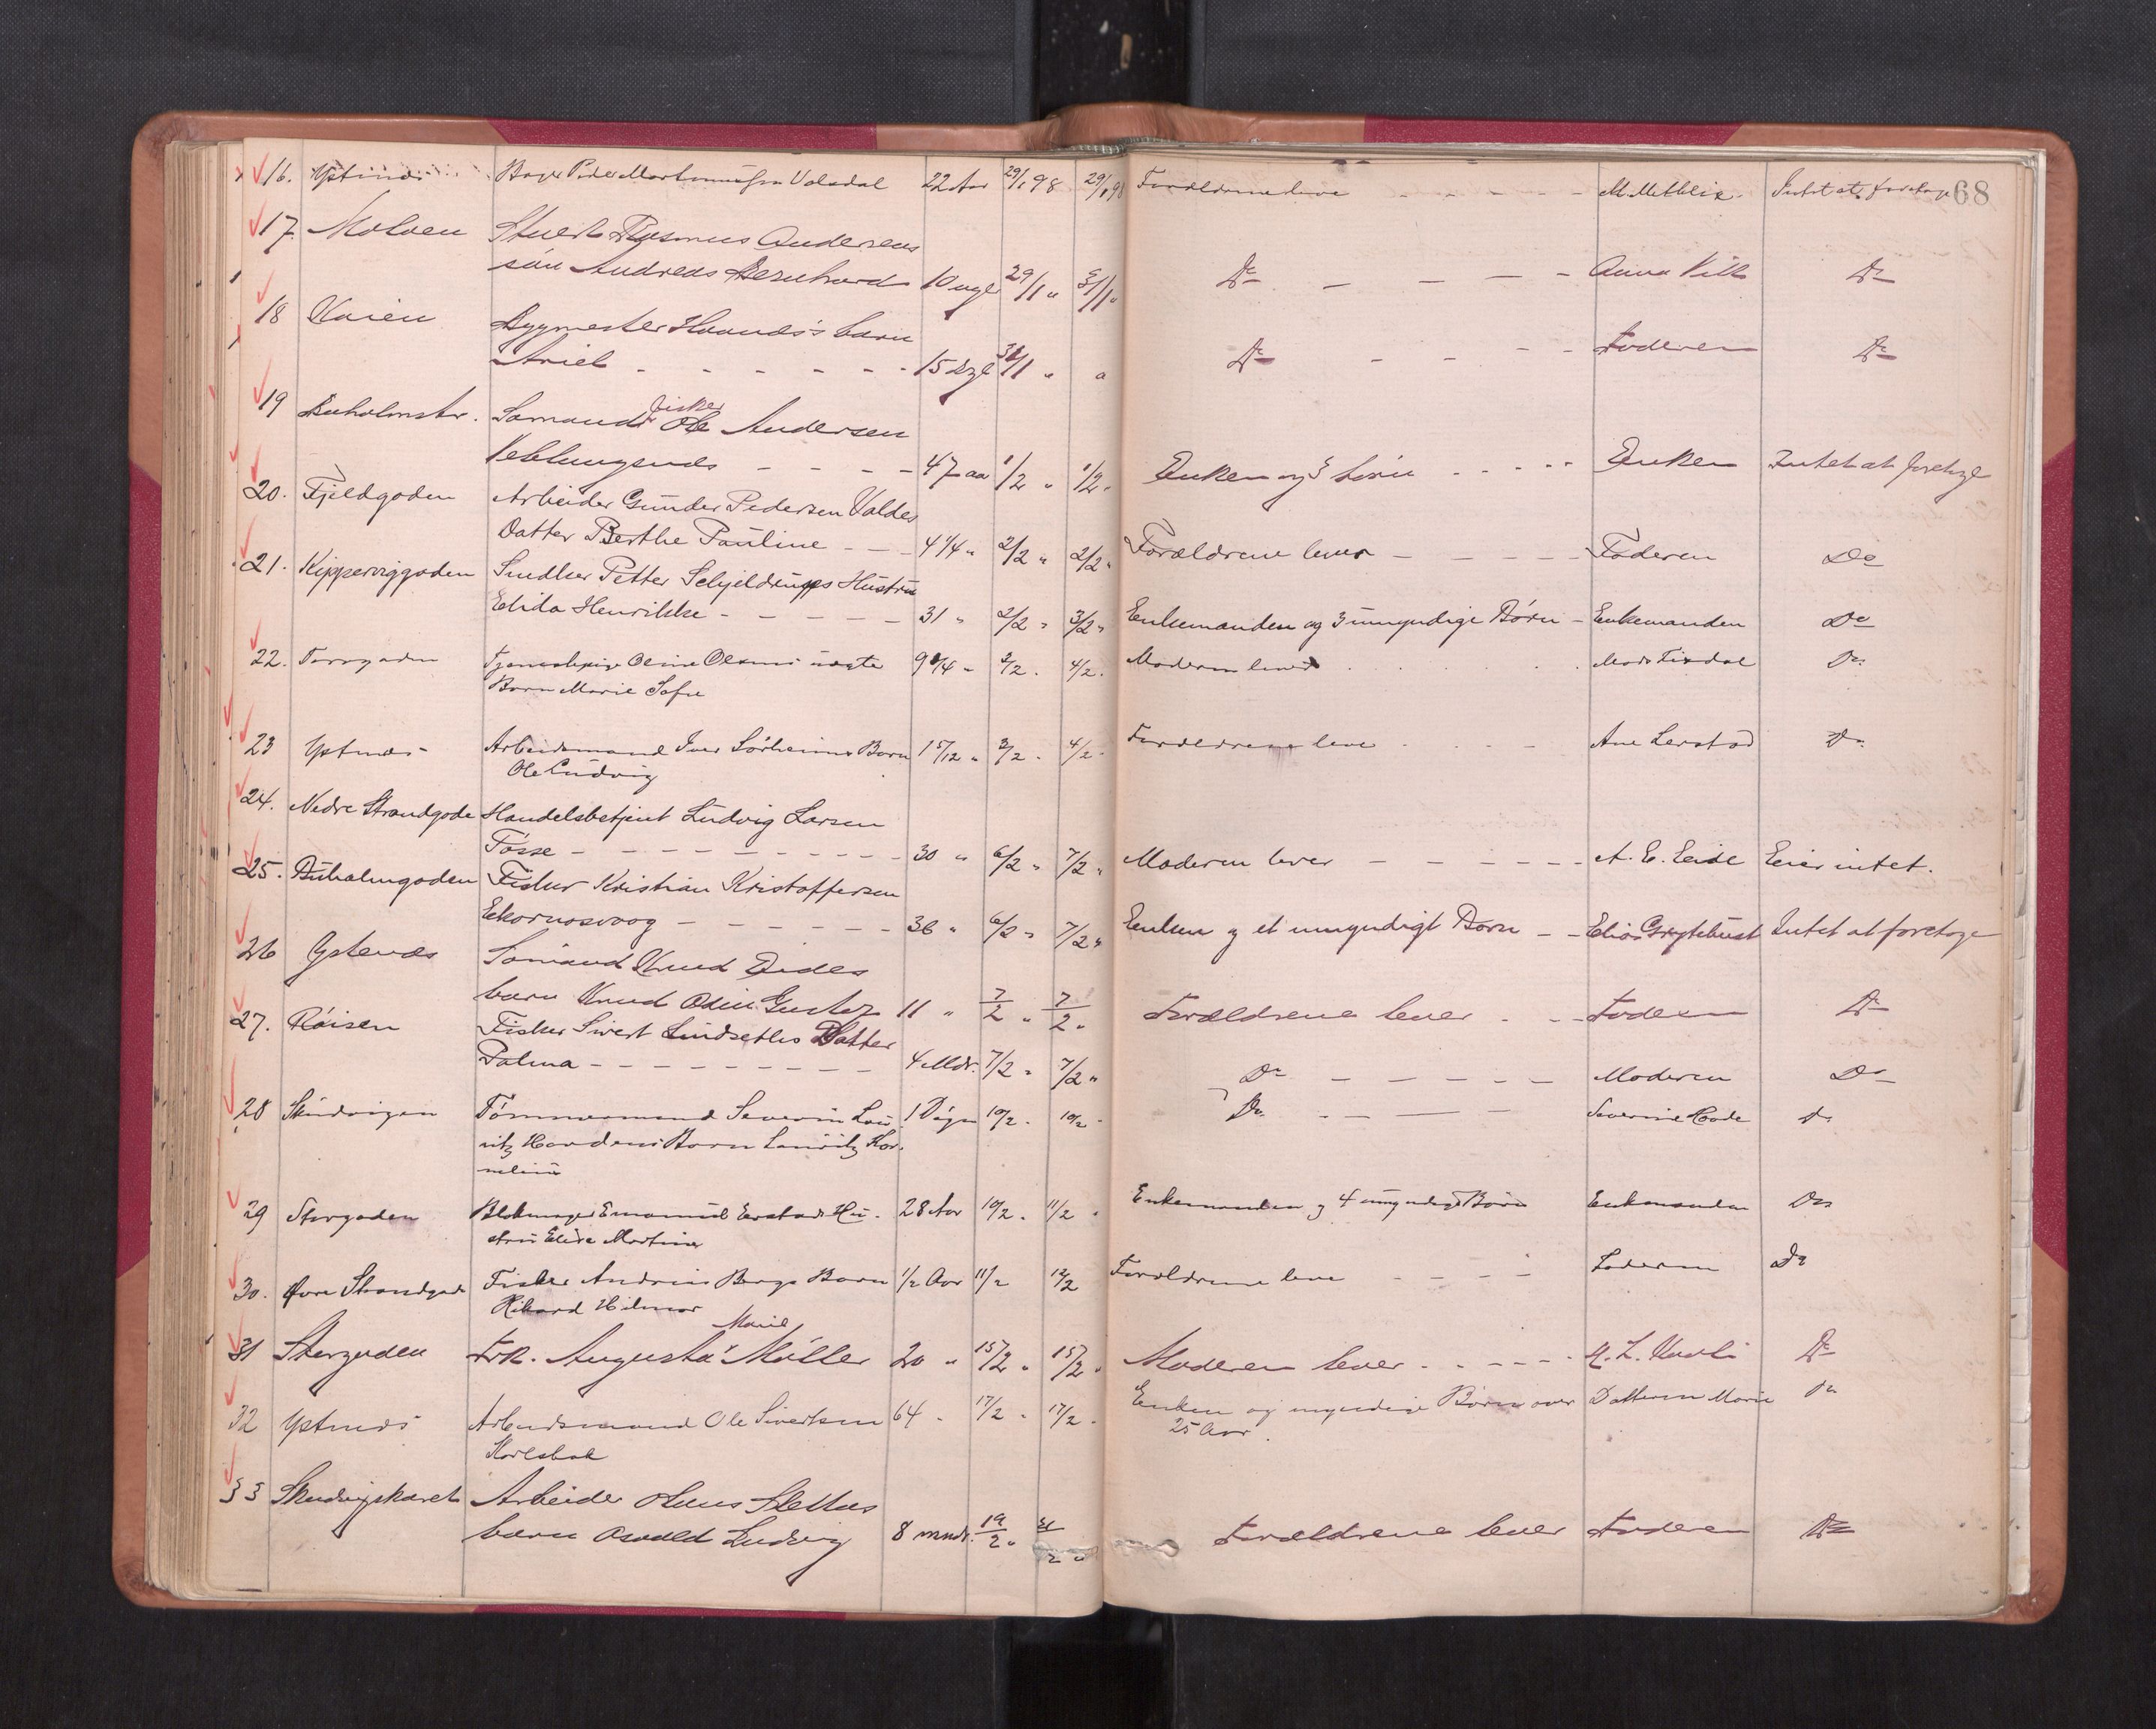 68
16. Ystenæs Bager Peder Martinussen Valsdal 22 Aar 29/1 98 29/1 98 Forældrene leve - - - - M. Metlie. Intet at foretage
17 Molven Stuert Rasmus Andersens
søn Andreas Bernhard 10 uger 29/1 " 31/1 " Do - - - - Anna Vilk Do
18 Kaien Bygmester Haanæs's barn
Ariel - - - - - - 15 Dge 31/1 " " Do - - - - Faderen Do
19 Buholmstr. Sømand Fisker Ole Andersen
Veblungsnæs - - - - 47 aar 1/2 " 1/2 " Enken og 3 børn - - - - Enken Intet at foretage
20. Fjeldgaden Arbeider Gunder Pedersen Valdes
Datter Berthe Pauline - - - 4 1/4 " 2/2 " 2/2 " Forældrene lever - - - - Faderen Do
21. Kipperviggaden Smdker Petter Schjeldrups Hustru
Elida Henrikke - - - - - 31 " 2/2 " 3/2 " Enkemanden og 3 umyndige Børn - Enkemanden Do
22. Torvgaden Tjenestepige Oline Olsens uægte 9/4 " 2/2 . 4/2 . Moderen lever . . . . . . Mads Fixdal Do
Barn Marie Sofie
23 Ystenæs Arbeidsmand Iver Sørheims Barn 1 5/12 " 3/2 . 4/2 . Forældrene leve . - - - Ane Lerstad Do
Ole Ludvig
24. Nedre Strandgade Handelsbetjent Ludvig Larsen
Fosse - - - - - - - - - 30 " 6/2 " 7/2 " Moderen lever - - - - - A. E. Eide Eier intet.
25. Buholmgaden Fisker Kristian Kristoffersen
Ekornosvaag - - - - - - 36 " 6/2 " 7/2 " Enken og et umyndigt Barn - - Elias Grytebust Intet at foretage
26 Ystenæs Sømand Knud Eides
barn Knud Odin Gustav 11 " 7/2 " 7/2 " Forældrene lever - - - Faderen Do
27. Røisen Fisker Sivert Lindsetks Datter
Palma - - - - - - - - 4 Mdr. 7/2 " 7/2 " Do - - - - - Moderen Do
28 Skudvigen Tømmermand Severin Lau 1 Døgn 10/2 . 10/2 . Do - - - - Severine Hovde Do
ritz Hovdens Barn Lauritz Kor.
nelius
29 Storgaden Blikmager Emanuel Erstads Hu- 28 Aar 10/2 . 11/2 . Enkemanden og 4 umyndige Børn Enkemanden Do
stru Elise Martine
30. Øvre Strandgade Fisker Andreas Bergs Barn 1/2 Aar 11/2 12/2 Forældrene leve - - - - Faderen Do
Rikard Hilmar
31 Storgaden Frk. Augusta Marie Møller 20 " 15/2 " 15/2 " Moderen lever - - - - - M. L. Kvali Do
32 Ystenæs Arbeidsmand Ole Sivertsen 64 . 17/2 . 17/2 . Enken og myndige Børn over Datteren Marie Do
Korlsbak 25 Aar.
33 Skudvigskaret Arbeider Hans Slettas
barn Osvald Ludvig 8 mndr. 19/2 " 21/2 " Forældrene lever Faderen Do